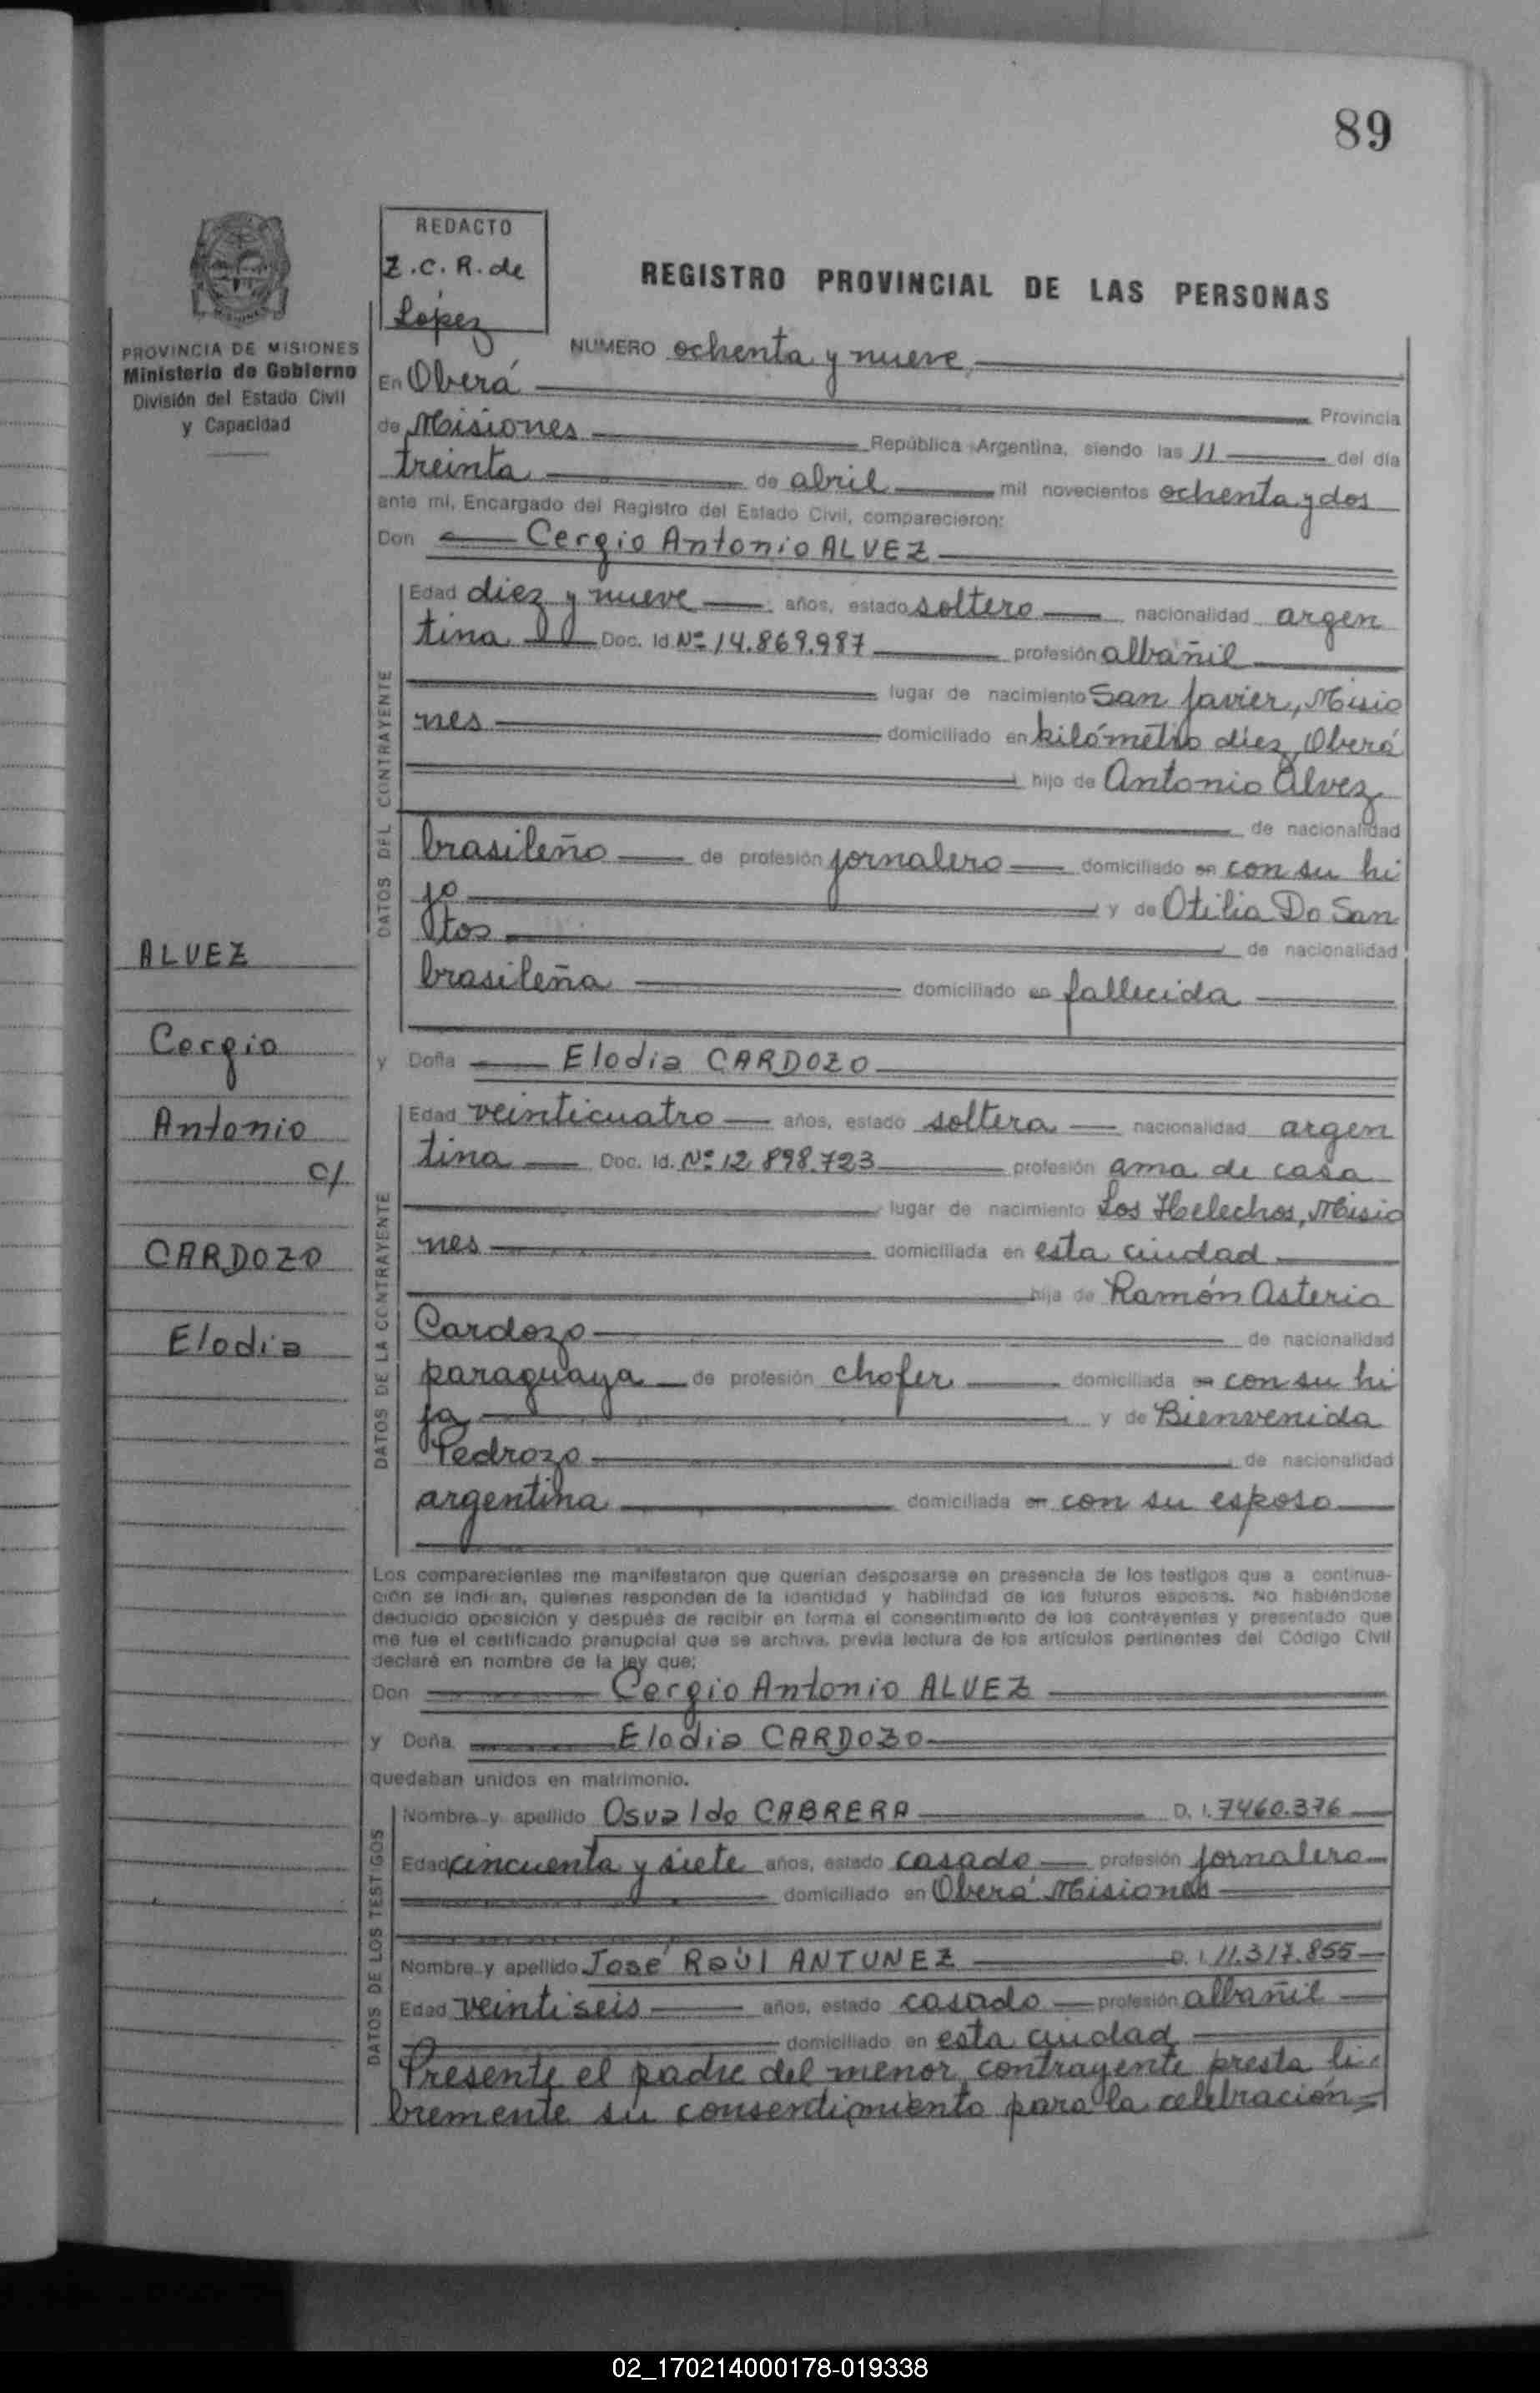 89
REDACTO
Z.C.R. de
López
REGISTRO PROVINCIAL DE LAS PERSONAS
PROVINCIA DE MISIONES
Ministerio de Gobierno
División del Estado Civil
y Capacidad
NUMERO ochenta y nueve
En Oberá Provincia
de Misiones República Argentina, siendo las 11 del día
treinta de abril mil novecientos ochenta y dos
ante mí, Encargado del Registro del Estado Civil, comparecieron:
Don Cergio Antonio ALVEZ
DATOS DEL CONTRAYENTE
Edad diez y nueve años, estado soltero nacionalidad argen
tina Doc. Id. Nº 14.869.987 profesión albañil
lugar de nacimiento San Javier, Misio
nes domiciliado en kilómetro diez, Oberá
hijo de Antonio Alvez
de nacionalidad
brasileño de profesión jornalero domiciliado en con su hi
jo y de Otilia Do San
tos de nacionalidad
brasileña domiciliado en fallecida
y Doña Elodia CARDOZO
DATOS DE LA CONTRAYENTE
Edad veinticuatro años, estado soltera nacionalidad argen
tina Doc. Id. Nº 12.898.723 profesión ama de casa
lugar de nacimiento Los Helechos, Misio
nes domiciliada en esta ciudad
hija de Ramón Asterio
Cardozo de nacionalidad
paraguaya de profesión chofer domiciliada en con su hi
ja y de Bienvenida
Pedrozo de nacionalidad
argentina domiciliada en con su esposo
Los comparecientes me manifestaron que querían desposarse en presencia de los testigos que a continua-
ción se indi an, quienes responden de la identidad y habilidad de los futuros esposos. No habiéndose
deducido oposición y después de recibir en forma el consentimiento de los contrayentes y presentado que
me fue el certificado prenupcial que se archiva, previa lectura de los artículos pertinentes del Código Civil
declaré en nombre de la ley que:
Don Cergio Antonio ALVEZ
y Doña Elodia CARDOZO
quedaban unidos en matrimonio.
DATOS DE LOS TESTIGOS
Nombre y apellido Osvaldo CABRERA D. I. 7460.376
Edad cincuenta y siete años, estado casado profesión jornalero
domiciliado en Oberá Misiones
Nombre y apellido José Raúl ANTUNEZ D. I. 11.317.855
Edad veintiseis años, estado casado profesión albañil
domiciliado en esta ciudad
Presente el padre del menor contrayente presta li-
bremente su consentimiento para la celebración
ALVEZ
Cergio
Antonio
c/.
CARDOZO
Elodia
02_170214000178-019338